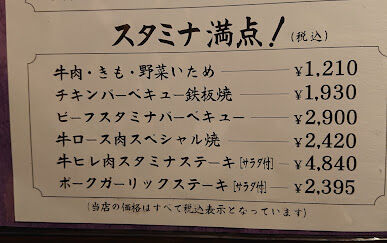 スタミナ満点！(税込)
牛肉・きも・野菜いため ¥1,210
チキンバーベキュー鉄板焼 ¥1,930
ビーフスタミナバーベキュー ¥2,900
牛ロース肉スペシャル焼 ¥2,420
牛ヒレ肉スタミナステーキ[サラダ付] ¥4,840
ポークガーリックステーキ[サラダ付] ¥2,395
(当店の価格はすべて税込表示となっています)